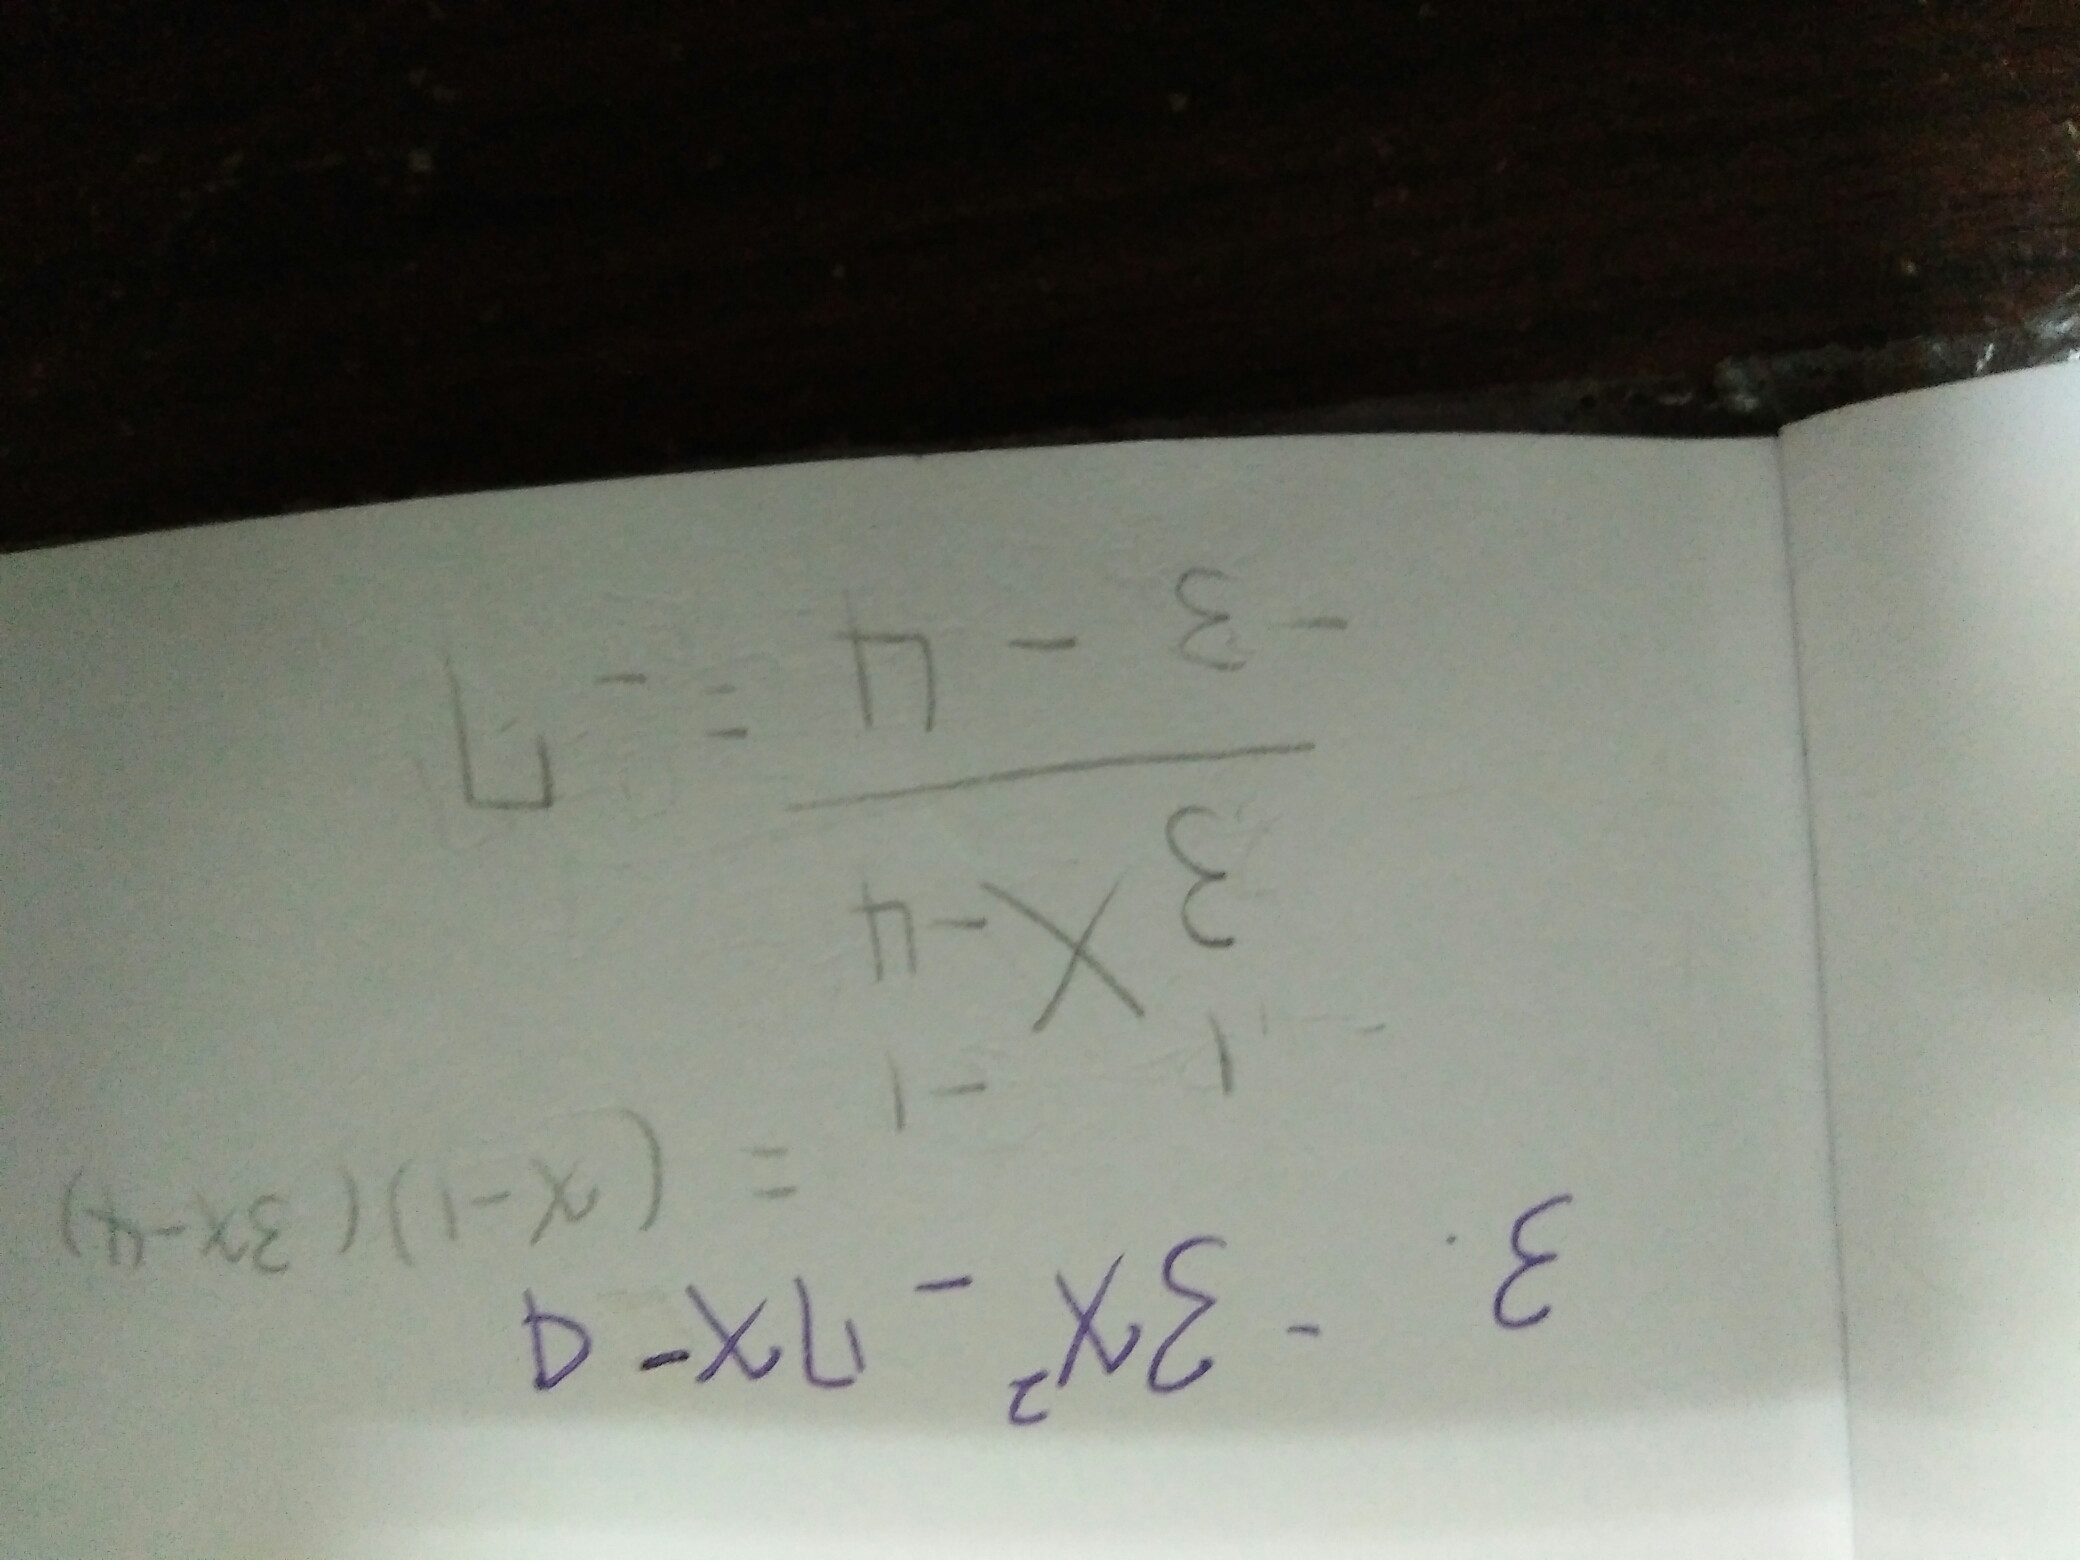 3. -3x² - 7x - 4
= (x-1)(3x-4)
1 -1
3 -4
-3 - 4 = -7